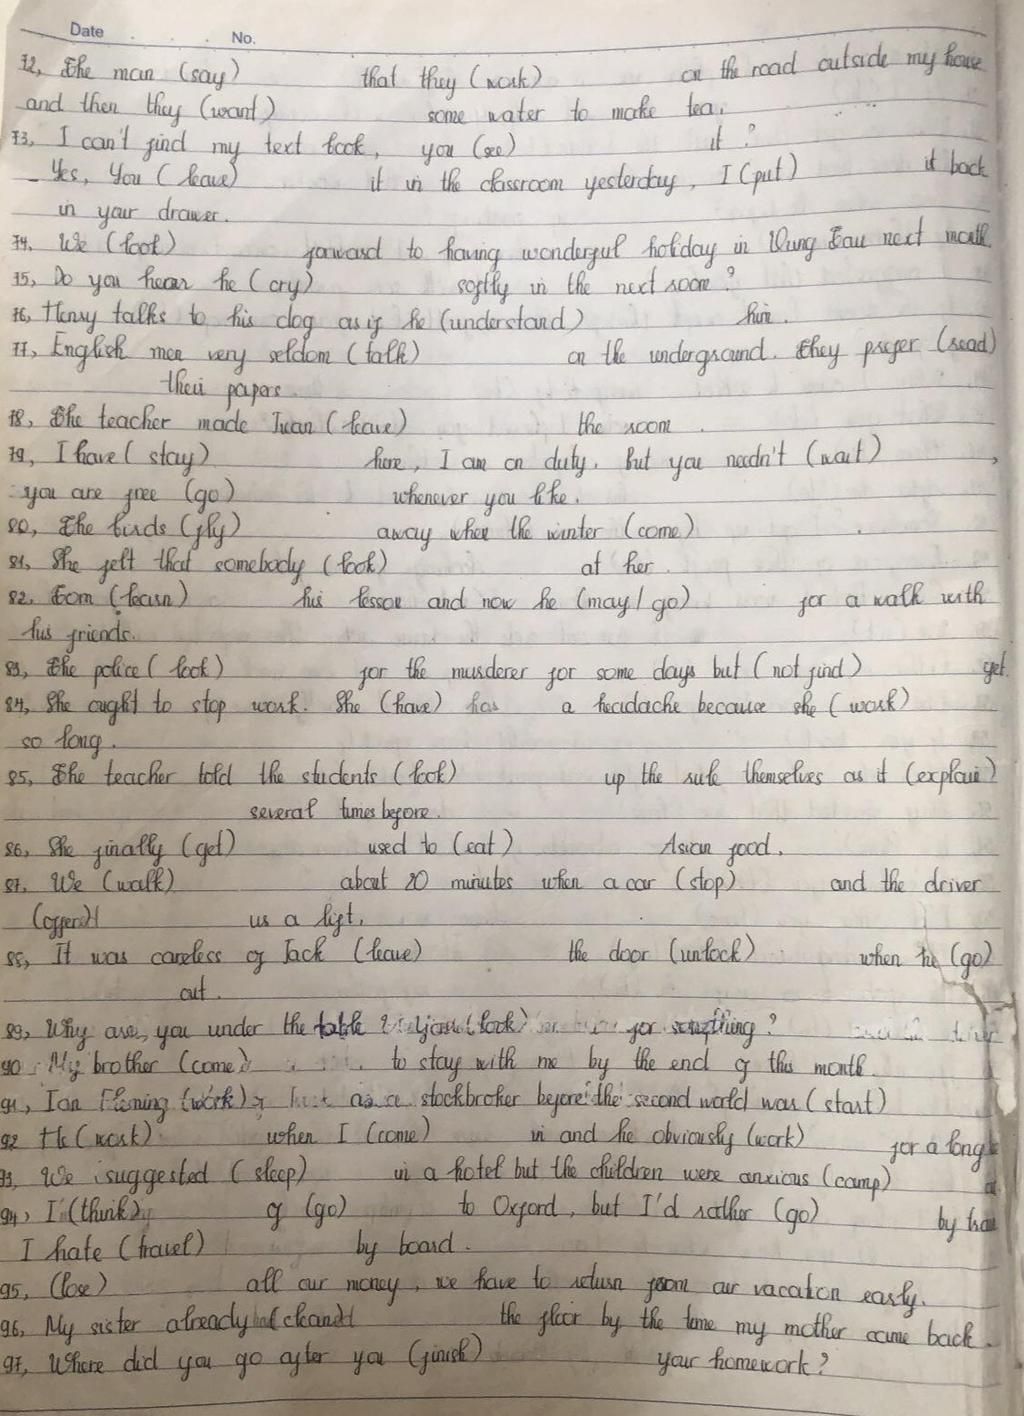 Date No.
72, The man (say) that they (work) on the road outside my house
and then they (want) some water to make tea.
73, I can't find my text book, you (see) it ?
_ Yes, You (leave) it in the classroom yesterday, I (put) it back
in your drawer.
74, We (look) forward to having wonderful holiday in Vung Tau next month
75, Do you hear he (cry) softly in the next room ?
76, Henry talks to his dog as if he (understand) him.
77, English men very seldom (talk) on the underground. They prefer (read)
their papers.
78, The teacher made Tuan (leave) the room .
79, I have (stay) here, I am on duty, but you needn't (wait) ,
you are free (go) whenever you like.
80, The birds (fly) away when the winter (come) .
81, She felt that somebody (look) at her.
82. Tom (learn) his lesson and now he (may / go) for a walk with
his friends.
83, The police (look) for the murderer for some days but (not find) yet.
84, She ought to stop work. She (have) has a headache because she (work)
so long.
85, The teacher told the students (look) up the rule themselves as it (explain)
several times before.
86, She finally (get) used to (eat) Asian food.
87, We (walk) about 20 minutes when a car (stop) and the driver
(offer) us a lift.
88, It was careless of Jack (leave) the door (unlock) when he (go)
out.
89, Why are you under the table ? (look) for something ?
90, My brother (come) to stay with me by the end of this month.
91, Ian Fleming (work) as a stockbroker before the second world was (start)
92 He (work) when I (come) in and he obviously (work) for a long
93, We suggested (sleep) in a hotel but the children were anxious (camp)
94, I (think) of (go) to Oxford, but I'd rather (go) by
I hate (travel) by board.
95, (lose) all our money, we have to return from our vacation early.
96, My sister already (clean) the floor by the time my mother came back.
97, Where did you go after you (finish) your homework ?